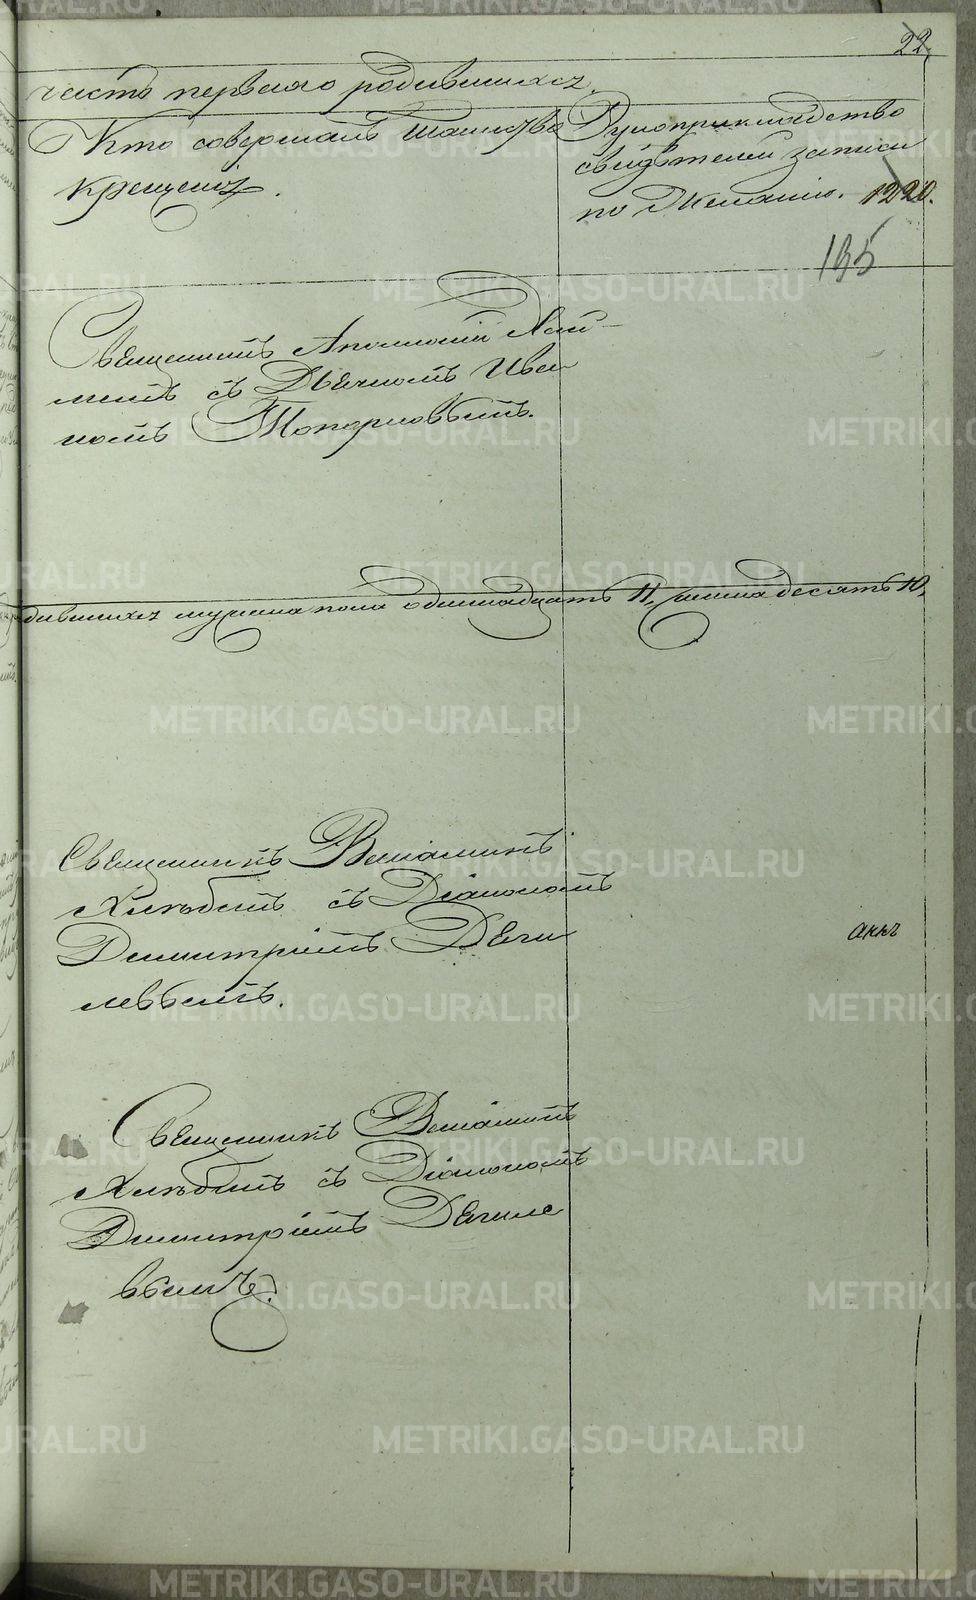 22
часть первая о родившихся.
Кто совершалъ таинство
крещенія.
Рукоприкладство
свидѣтелей записи
по желанію. 1220.
135
Священникъ Аполлоній
съ Дьячкомъ Ива
номъ Топорковымъ.
дившихся мужеска пола одиннадцать 11, женска десять 10,
Священникъ Веніаминъ
Хлѣбинъ съ Діакономъ
Димитріемъ Дяги
левымъ.
Священникъ Веніаминъ
Хлѣбинъ съ Діакономъ
Димитріемъ Дягиле
вымъ.
METRIKI.GASO-URAL.RU